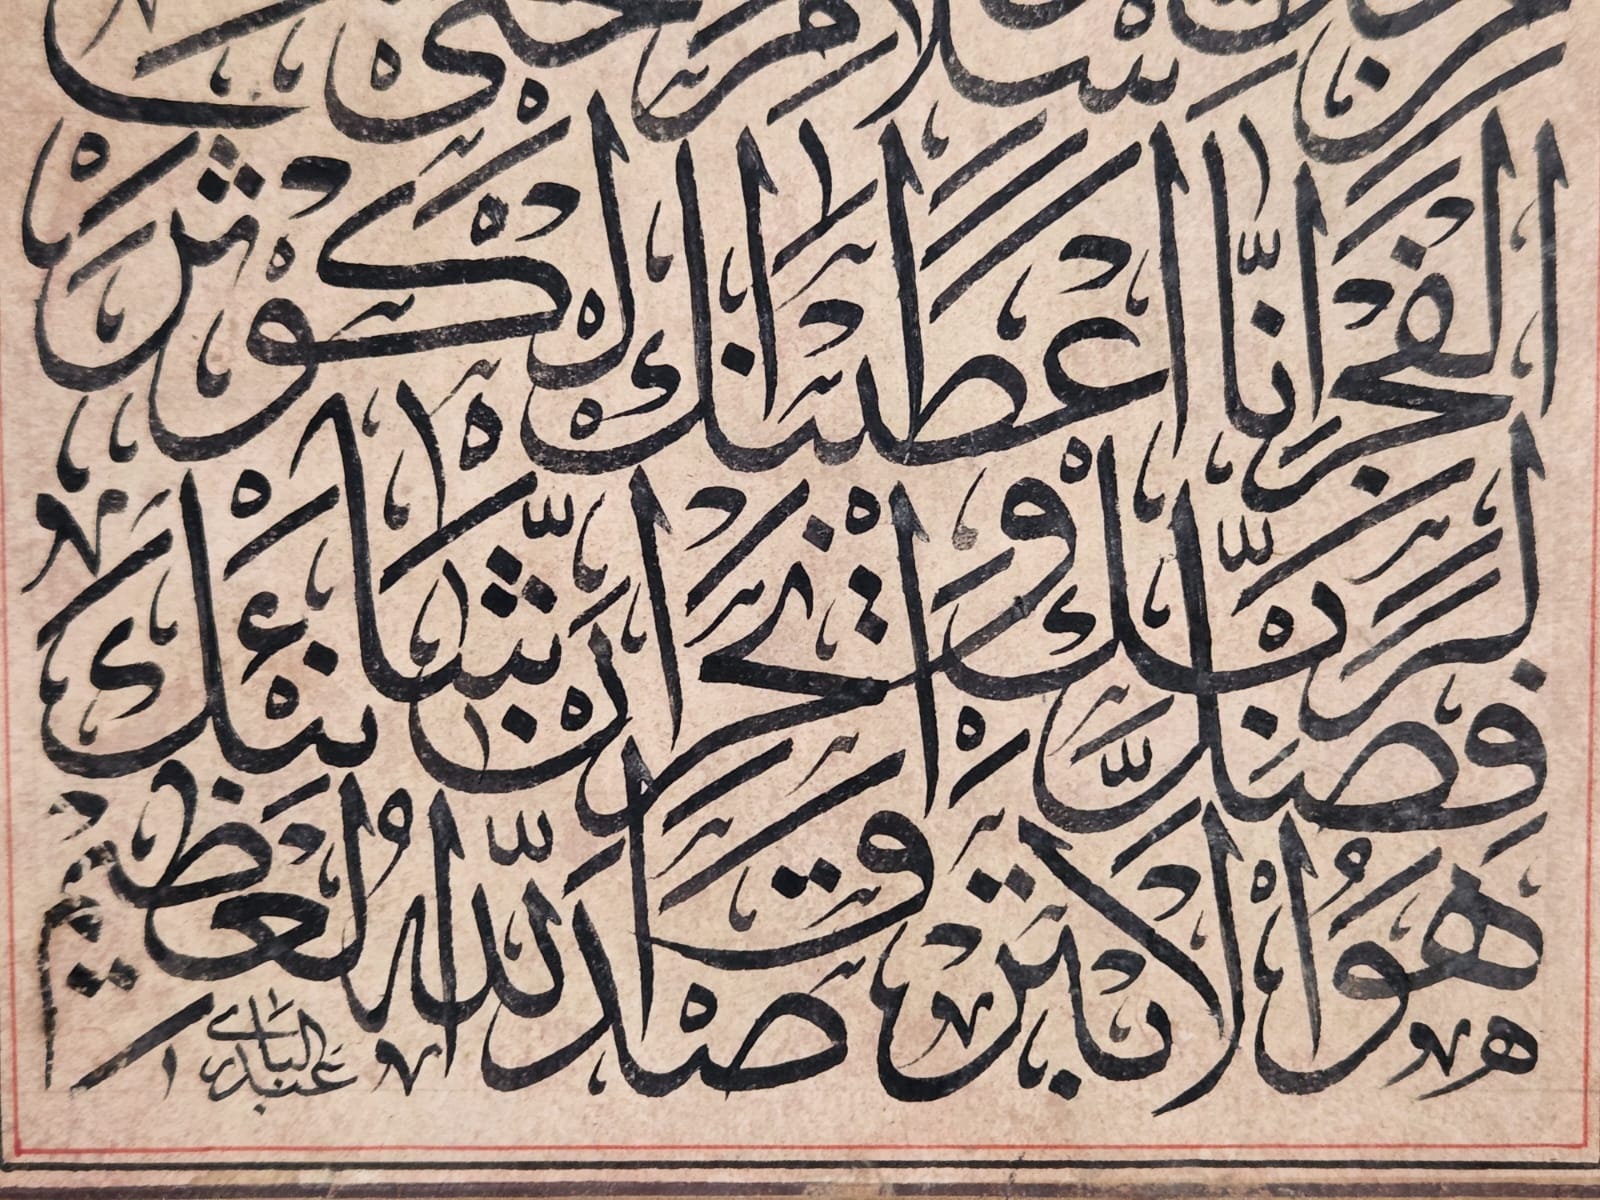 سلام حتى
الفجر انا اعطيناك الكوثر
فصل لربك وانحر ان شانئك
هو الابتر صدق الله العظيم
عبد الباقي